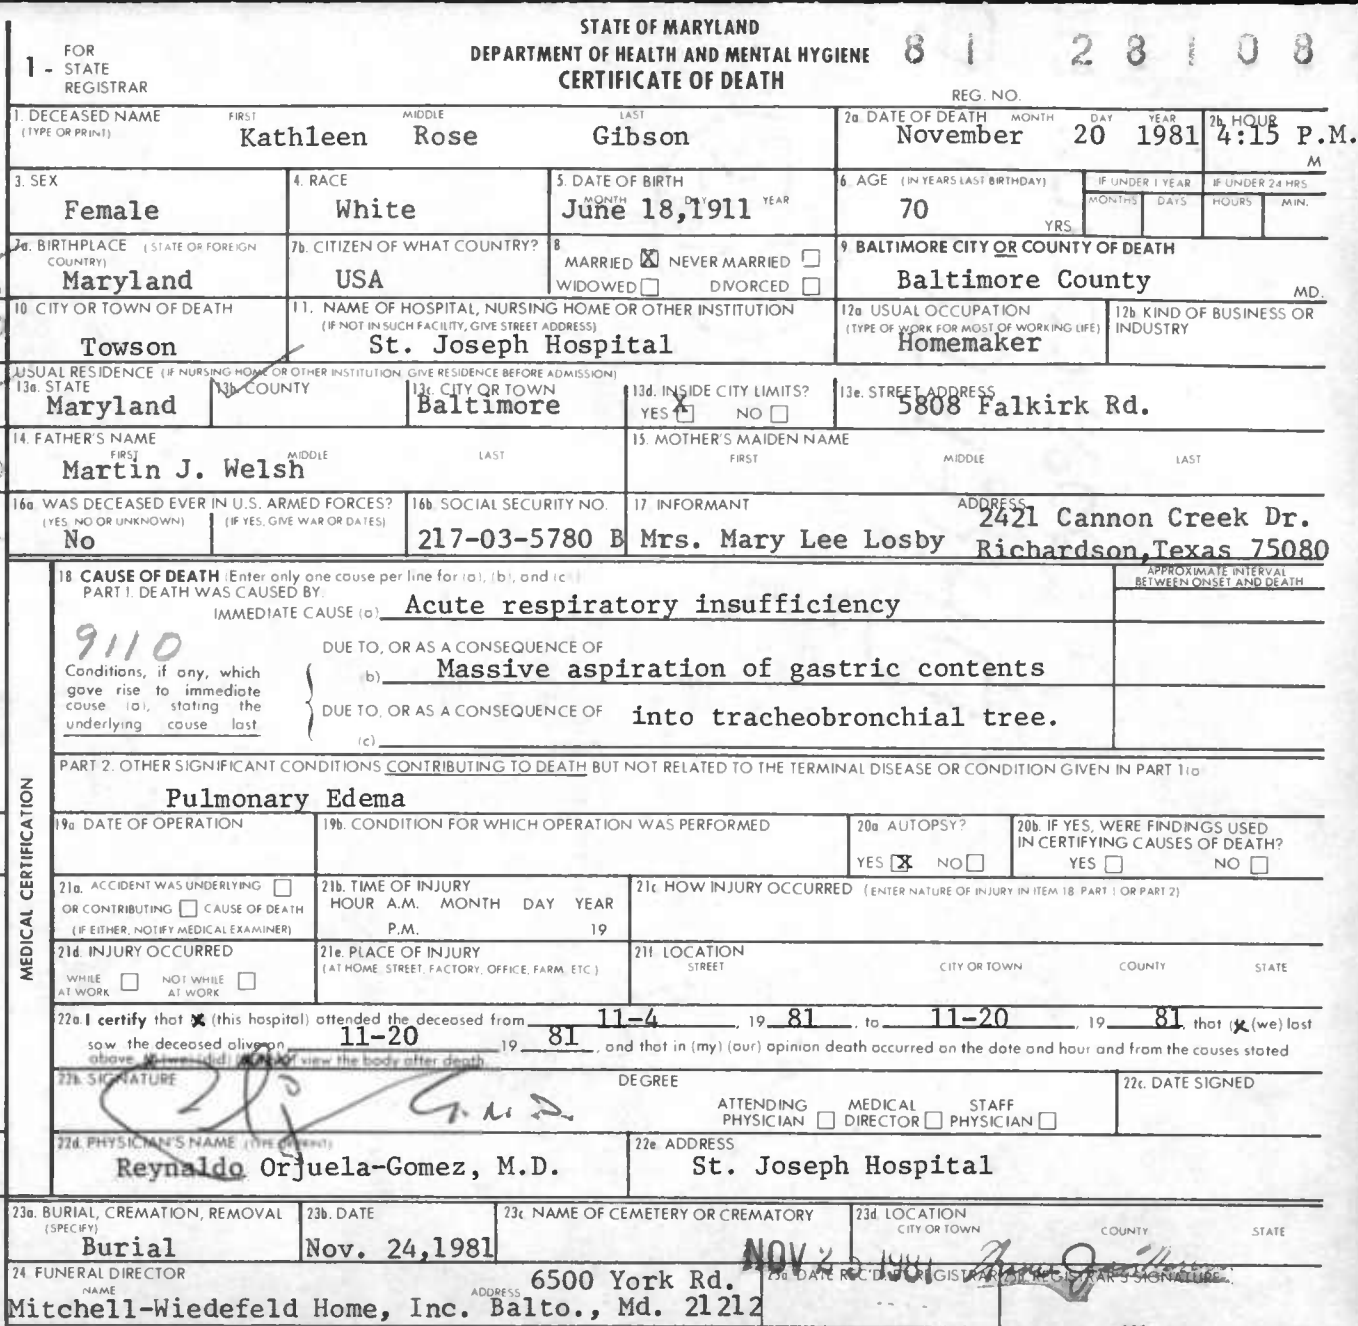 STATE OF MARYLAND
DEPARTMENT OF HEALTH AND MENTAL HYGIENE
CERTIFICATE OF DEATH
1 - FOR STATE REGISTRAR
81 28108
REG. NO.
1. DECEASED NAME (TYPE OR PRINT) FIRST MIDDLE LAST
Kathleen Rose Gibson
2a. DATE OF DEATH MONTH DAY YEAR
November 20 1981
2b. HOUR
4:15 P.M.
M
3. SEX
Female
4. RACE
White
5. DATE OF BIRTH MONTH DAY YEAR
June 18,1911
6. AGE (IN YEARS LAST BIRTHDAY)
70 YRS
IF UNDER 1 YEAR MONTHS DAYS
IF UNDER 24 HRS HOURS MIN.
7a. BIRTHPLACE (STATE OR FOREIGN COUNTRY)
Maryland
7b. CITIZEN OF WHAT COUNTRY?
USA
8 MARRIED X NEVER MARRIED
WIDOWED DIVORCED
9 BALTIMORE CITY OR COUNTY OF DEATH
Baltimore County MD.
10 CITY OR TOWN OF DEATH
Towson
11. NAME OF HOSPITAL, NURSING HOME OR OTHER INSTITUTION
(IF NOT IN SUCH FACILITY, GIVE STREET ADDRESS)
St. Joseph Hospital
12a USUAL OCCUPATION
(TYPE OF WORK FOR MOST OF WORKING LIFE)
Homemaker
12b KIND OF BUSINESS OR INDUSTRY
USUAL RESIDENCE (IF NURSING HOME OR OTHER INSTITUTION GIVE RESIDENCE BEFORE ADMISSION)
13a. STATE
Maryland
13b. COUNTY
13c. CITY OR TOWN
Baltimore
13d. INSIDE CITY LIMITS?
YES X NO
13e. STREET ADDRESS
5808 Falkirk Rd.
14. FATHER'S NAME
FIRST MIDDLE LAST
Martin J. Welsh
15. MOTHER'S MAIDEN NAME
FIRST MIDDLE LAST
16a WAS DECEASED EVER IN U.S. ARMED FORCES?
(YES, NO OR UNKNOWN) (IF YES, GIVE WAR OR DATES)
No
16b SOCIAL SECURITY NO.
217-03-5780 B
17 INFORMANT ADDRESS
Mrs. Mary Lee Losby
2421 Cannon Creek Dr.
Richardson,Texas 75080
18 CAUSE OF DEATH (Enter only one cause per line for (a), (b), and (c)
APPROXIMATE INTERVAL BETWEEN ONSET AND DEATH
PART I. DEATH WAS CAUSED BY:
IMMEDIATE CAUSE (a) Acute respiratory insufficiency
9110
DUE TO, OR AS A CONSEQUENCE OF
Conditions, if any, which gave rise to immediate cause (a), stating the underlying cause last
b) Massive aspiration of gastric contents
DUE TO, OR AS A CONSEQUENCE OF into tracheobronchial tree.
(c)
PART 2. OTHER SIGNIFICANT CONDITIONS CONTRIBUTING TO DEATH BUT NOT RELATED TO THE TERMINAL DISEASE OR CONDITION GIVEN IN PART 1(a
Pulmonary Edema
MEDICAL CERTIFICATION
19a DATE OF OPERATION
19b. CONDITION FOR WHICH OPERATION WAS PERFORMED
20a AUTOPSY?
YES X NO
20b. IF YES, WERE FINDINGS USED IN CERTIFYING CAUSES OF DEATH?
YES NO
21a. ACCIDENT WAS UNDERLYING
OR CONTRIBUTING CAUSE OF DEATH
(IF EITHER, NOTIFY MEDICAL EXAMINER)
21b. TIME OF INJURY
HOUR A.M. MONTH DAY YEAR
P.M. 19
21c HOW INJURY OCCURRED (ENTER NATURE OF INJURY IN ITEM 18 PART 1 OR PART 2)
21d. INJURY OCCURRED
WHILE AT WORK NOT WHILE AT WORK
21e. PLACE OF INJURY
(AT HOME, STREET, FACTORY, OFFICE, FARM, ETC.)
21f LOCATION
STREET CITY OR TOWN COUNTY STATE
22a. I certify that X (this hospital) attended the deceased from 11-4, 19 81, to 11-20, 19 81, that (X (we) last
saw the deceased alive on 11-20 19 81, and that in (my) (our) opinion death occurred on the date and hour and from the causes stated
above. (we) (did) view the body after death.
22b. SIGNATURE
DEGREE
ATTENDING PHYSICIAN MEDICAL DIRECTOR STAFF PHYSICIAN
22c. DATE SIGNED
22d. PHYSICIAN'S NAME (TYPE OR PRINT)
Reynaldo Orjuela-Gomez, M.D.
22e. ADDRESS
St. Joseph Hospital
23a. BURIAL, CREMATION, REMOVAL
(SPECIFY)
Burial
23b. DATE
Nov. 24,1981
23c NAME OF CEMETERY OR CREMATORY
23d. LOCATION
CITY OR TOWN COUNTY STATE
24 FUNERAL DIRECTOR
NAME ADDRESS
6500 York Rd.
Mitchell-Wiedefeld Home, Inc. Balto., Md. 21212
NOV 23 1981
25a DATE REC'D BY REGISTRAR
25b REGISTRAR'S SIGNATURE